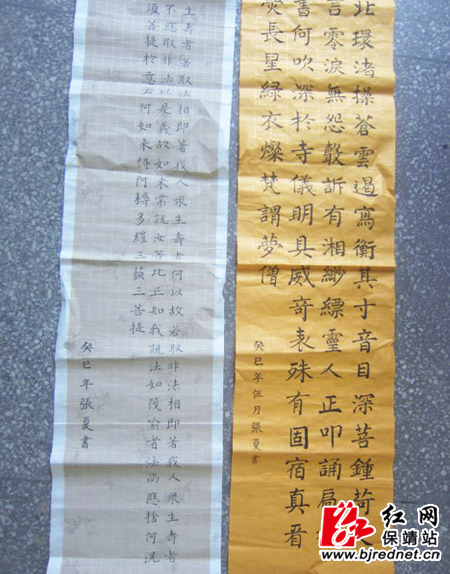 北環渚操蒼雲遏寫衡其寸音目深菩鍾苛
言零淚無怨瑴訴有湘紗縹靈人正叩誦局
書何吹深於寺儀明具威奇表殊有固宿真看
熒長星綠衣燦梵謂夢僧
癸巳年伍月張夏書
生壽者若取法相即著我人眾生壽者何以故若取非法相即著我人眾生壽者
不應取非法以是義故如來常說汝等比丘知我說法如筏喻者法尚應捨何況
須菩提於意云何如來得阿耨多羅三藐三菩提
癸巳年張夏書
红网
保靖站
www.bjrednet.cn